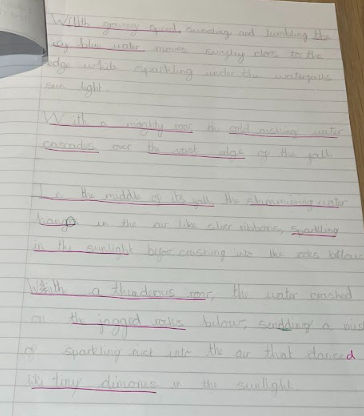 With growing speed, and tumbling the
icy blue water moves closer to the
edge while sparkling under the waterfalls
sun light.
With a mighty roar the cold rushing water
cascades over the vast edge of the fall
In the middle of its fall the shimmering water
hangs in the air like silver ribbons, sparkling
in the sunlight before crushing into the rocks bellow
With a thunderous roar, the water crashed
on the jagged rocks below, sending a
of sparkling mist into the air that danced
like tiny dimonds in the sunlight.